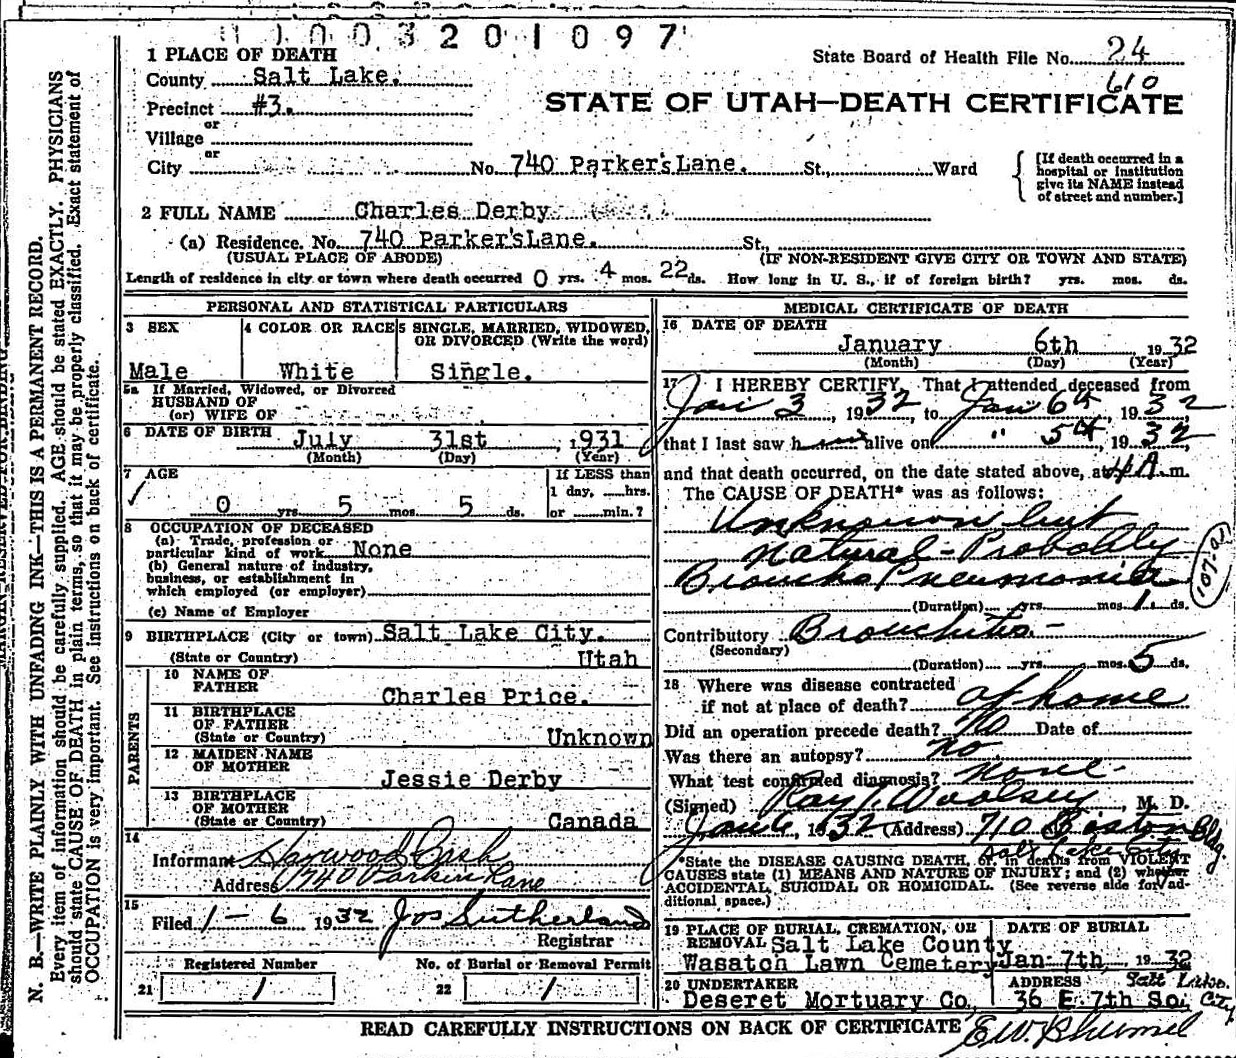 1003201097
1 PLACE OF DEATH
State Board of Health File No. 24
County Salt Lake.
610
Precinct #3.
STATE OF UTAH—DEATH CERTIFICATE
or
Village
or
City No. 740 Parker's Lane. St., Ward
[If death occurred in a hospital or institution give its NAME instead of street and number.]
2 FULL NAME Charles Derby
(a) Residence. No. 740 Parker's Lane. St.,
(USUAL PLACE OF ABODE) (IF NON-RESIDENT GIVE CITY OR TOWN AND STATE)
Length of residence in city or town where death occurred 0 yrs. 4 mos. 22 ds. How long in U. S., if of foreign birth? yrs. mos. ds.
PERSONAL AND STATISTICAL PARTICULARS
3 SEX 4 COLOR OR RACE 5 SINGLE, MARRIED, WIDOWED, OR DIVORCED (Write the word)
Male White Single.
5a If Married, Widowed, or Divorced
HUSBAND OF
(or) WIFE OF
6 DATE OF BIRTH July 31st, 1931
(Month) (Day) (Year)
7 AGE If LESS than
1 day, hrs.
0 yrs. 5 mos. 5 ds. or min.?
8 OCCUPATION OF DECEASED
(a) Trade, profession or
particular kind of work None
(b) General nature of industry,
business, or establishment in
which employed (or employer)
(c) Name of Employer
9 BIRTHPLACE (City or town) Salt Lake City.
(State or Country) Utah
PARENTS
10 NAME OF
FATHER Charles Price.
11 BIRTHPLACE
OF FATHER
(State or Country) Unknown
12 MAIDEN NAME
OF MOTHER Jessie Derby
13 BIRTHPLACE
OF MOTHER
(State or Country) Canada
14
Informant Cash
Address 740 Lane
15
Filed 1-6 1932 Jos Sutherland
Registrar
Registered Number No. of Burial or Removal Permit
21 1 22 1
MEDICAL CERTIFICATE OF DEATH
16 DATE OF DEATH
January 6th 1932
(Month) (Day) (Year)
17 I HEREBY CERTIFY, That I attended deceased from
Jan 3, 1932, to Jan 6th, 1932
that I last saw h alive on " 5th, 1932
and that death occurred, on the date stated above, at 4 A. m.
The CAUSE OF DEATH* was as follows:
Unknown but
Natural - Probably
Broncho Pneumonia
107-a
(Duration) yrs. mos. 1 ds.
Contributory Bronchitis.-
(Secondary)
(Duration) yrs. mos. 5 ds.
18 Where was disease contracted
if not at place of death? at home
Did an operation precede death? No Date of
Was there an autopsy? No
What test confirmed diagnosis? None.
(Signed) Ray T. Woolsey, M. D.
Jan 6, 1932 (Address) 710 Bldg.
Salt Lake City
*State the DISEASE CAUSING DEATH, or, in deaths from VIOLENT
CAUSES state (1) MEANS AND NATURE OF INJURY; and (2) whether
ACCIDENTAL, SUICIDAL OR HOMICIDAL. (See reverse side for ad-
ditional space.)
19 PLACE OF BURIAL, CREMATION, OR DATE OF BURIAL
REMOVAL Salt Lake County
Wasatch Lawn Cemetery Jan 7th, 1932
20 UNDERTAKER ADDRESS Salt Lake
Deseret Mortuary Co, 36 E. 7th So. City
READ CAREFULLY INSTRUCTIONS ON BACK OF CERTIFICATE
N. B.—WRITE PLAINLY WITH UNFADING INK—THIS IS A PERMANENT RECORD.
Every item of information should be carefully supplied. AGE should be stated EXACTLY. PHYSICIANS
should state CAUSE OF DEATH in plain terms, so that it may be properly classified. Exact statement of
OCCUPATION is very important. See instructions on back of certificate.